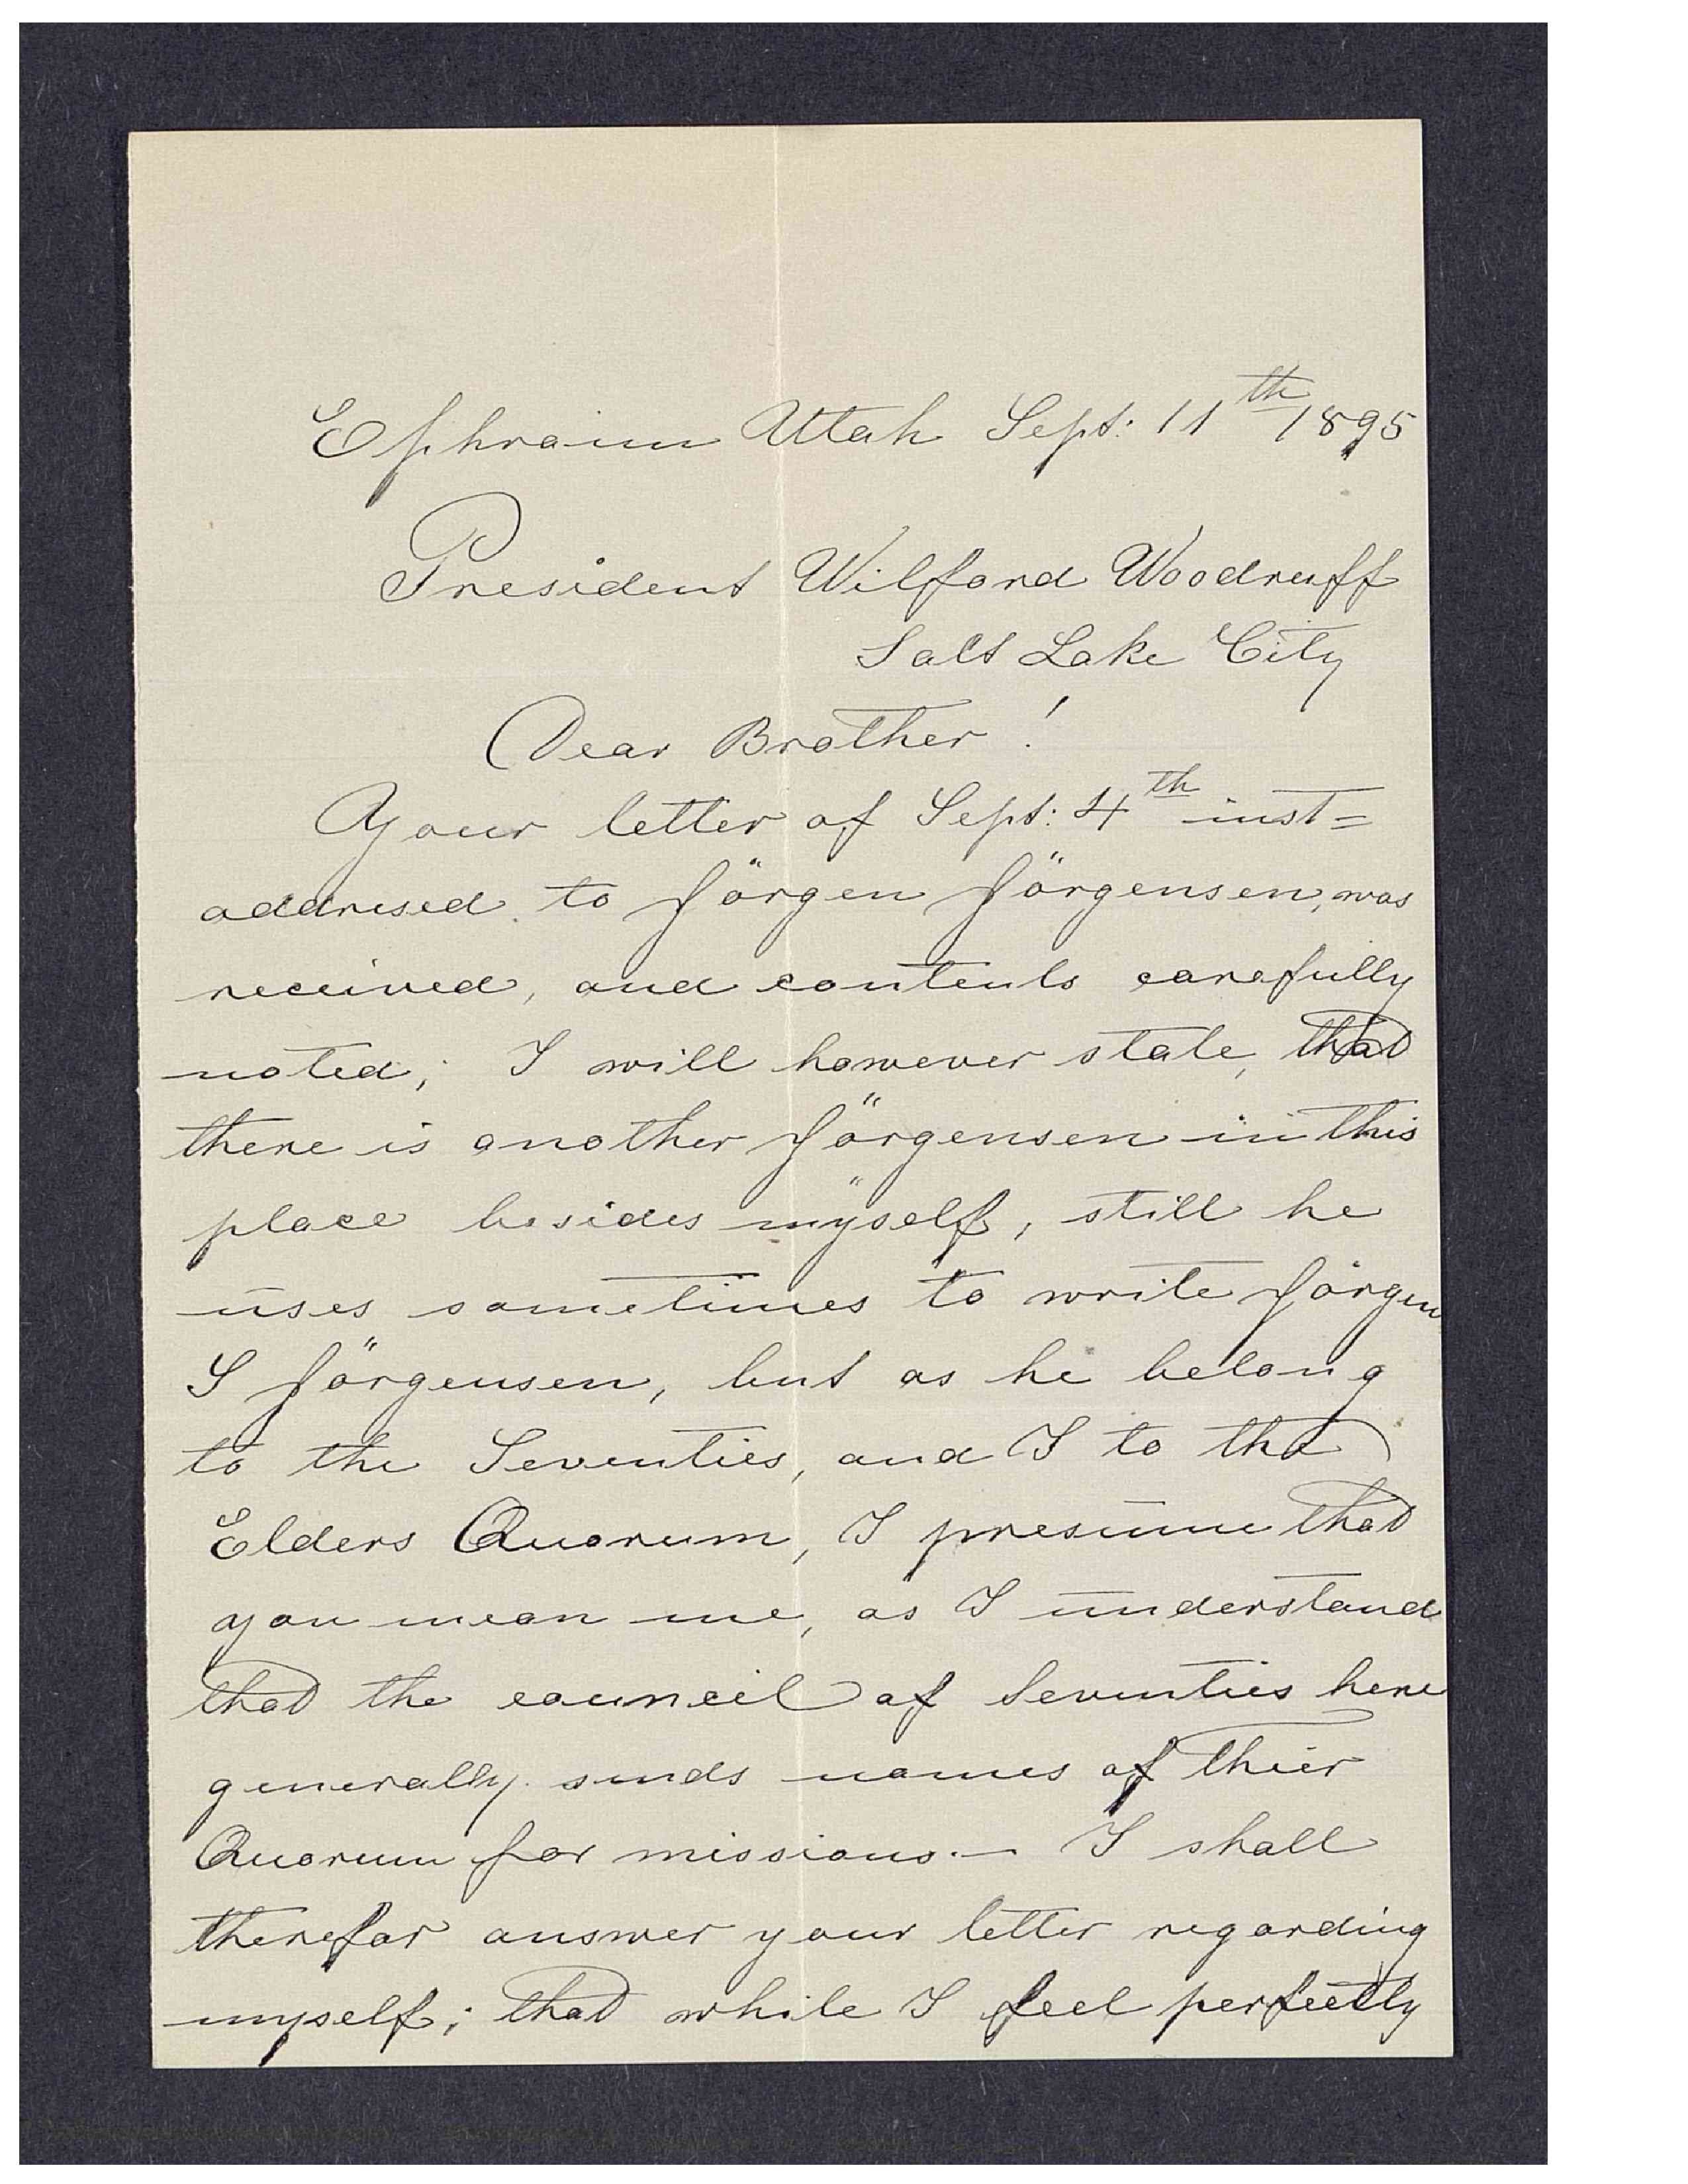 Ephraim Utah Sept: 11th 1895
President Wilford Woodruff
Salt Lake City
Dear Brother!
Your letter of Sept: 4th inst=
addresed to Jörgen Jörgensen, was
received, and contents carefully
noted; I will however state, that
there is another Jörgensen in this
place besides myself, still he
uses sometimes to write Jörgen
S Jörgensen, but as he belong
to the Seventies, and I to the
Elders Quorum, I presume that
you mean me, as I understand
that the council of Seventies here
generally sends names of thier
Quorum for missions.— I shall
therefor answer your letter regarding
myself; that while I feel perfectly